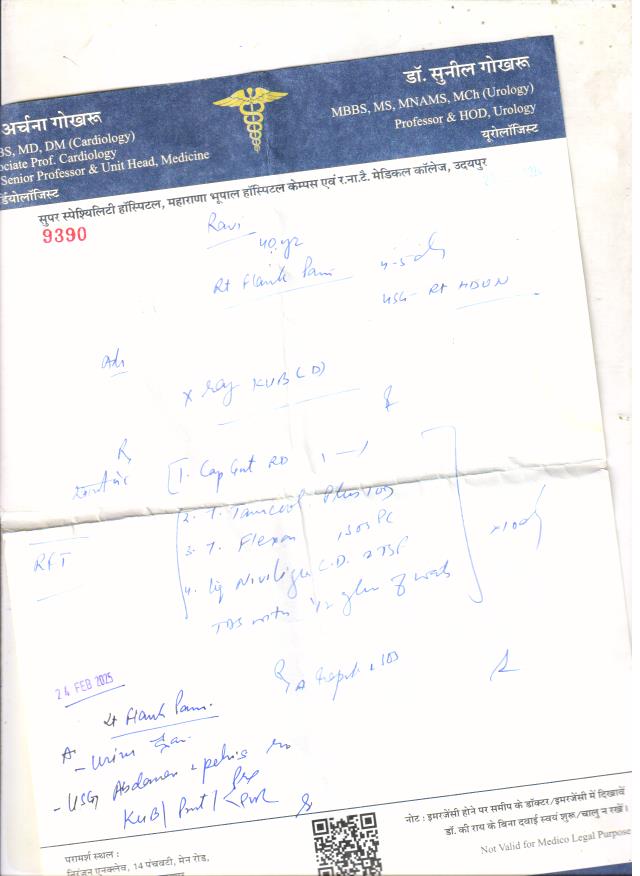 अर्चना गोखरू
BS, MD, DM (Cardiology)
ociate Prof. Cardiology
Senior Professor & Unit Head, Medicine
र्डियोलॉजिस्ट
डॉ. सुनील गोखरू
MBBS, MS, MNAMS, MCh (Urology)
Professor & HOD, Urology
यूरोलॉजिस्ट
सुपर स्पेश्यिलिटी हॉस्पिटल, महाराणा भूपाल हॉस्पिटल केम्पस एवं र.ना.टै. मेडिकल कॉलेज, उदयपुर
9390
Ravi
40 yr
Rt Flank Pain
USG - Rt HDUN
Adv
X ray KUB (D)
R
1. Cap Gut RD 1 — 1
2. T. Plus 1 OD
3. T. Flexon 1 SOS PC
4. Liq C.D. 2 TSP
TDS with 1/2 glass of water
x 10 d
RFT
24 FEB 2025
Flank Pain
- Urine
- USG Abdomen & pelvis
KUB / Prost / PVR
नोट : इमरजेंसी होने पर समीप के डॉक्टर/इमरजेंसी में दिखावें
डॉ. की राय के बिना दवाई स्वयं शुरू/चालु न रखें।
Not Valid for Medico Legal Purpose
परामर्श स्थल :
निरंजन एनक्लेव, 14 पंचवटी, मेन रोड,